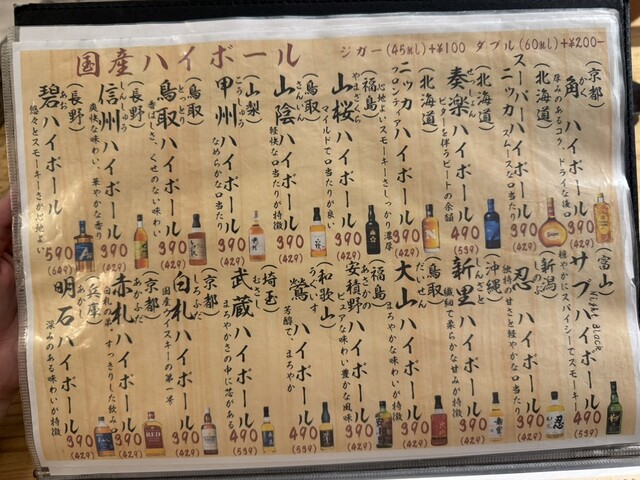 国産ハイボール
ジガー(45ml)+¥100 ダブル(60ml)+¥200-
(京都)
かく
角ハイボール
厚みのあるコク、ドライな後口
390
(429)
(北海道)
スーパーニッカハイボール
スムースな口当たり
390
(429)
(北海道)
せっしょん
奏楽ハイボール
ビターを伴うピートの余韻
490
(北海道)
ニッカフロンティアハイボール
心地よいスモーキーさしっかり濃厚
390
(429)
(福島)
やまざくら
山桜ハイボール
マイルドで口当たりが良い
390
(429)
(鳥取)
さんいん
山陰ハイボール
軽快な口当たりが特徴
390
(429)
(山梨)
こうしゅう
甲州ハイボール
なめらかな口当たり
390
(429)
(鳥取)
とっとり
鳥取ハイボール
香ばしさ、くせのない味わい
390
(429)
(長野)
しんしゅう
信州ハイボール
爽快な味わい、華やかな香り
390
(429)
(長野)
あお
碧ハイボール
悠々とスモーキーさが心地よい
590
(649)
(富山)
サブハイボール
BLACK
穏やかにスパイシーでスモーキー
490
(新潟)
しのぶ
忍ハイボール
独特の甘さと軽やかな口当たり
390
(429)
(沖縄)
しんざと
新里ハイボール
繊細で柔らかな甘みが特徴
390
(429)
(鳥取)
だいせん
大山ハイボール
まろやかな味わいが特徴
390
(429)
(福島)
あさかの
安積野ハイボール
ピュアな味わい豊かな風味
390
(429)
(和歌山)
うぐいす
鶯ハイボール
芳醇で、まろやか
390
(429)
(埼玉)
むさし
武蔵ハイボール
まろやかさの中に芯がある
490
(京都)
しろふだ
白札ハイボール
国産ウイスキーの第一号
390
(429)
(京都)
あかふだ
赤札ハイボール
白札の弟、すっきりした飲み口
390
(429)
(兵庫)
あかし
明石ハイボール
深みのある味わいが特徴
390
(429)